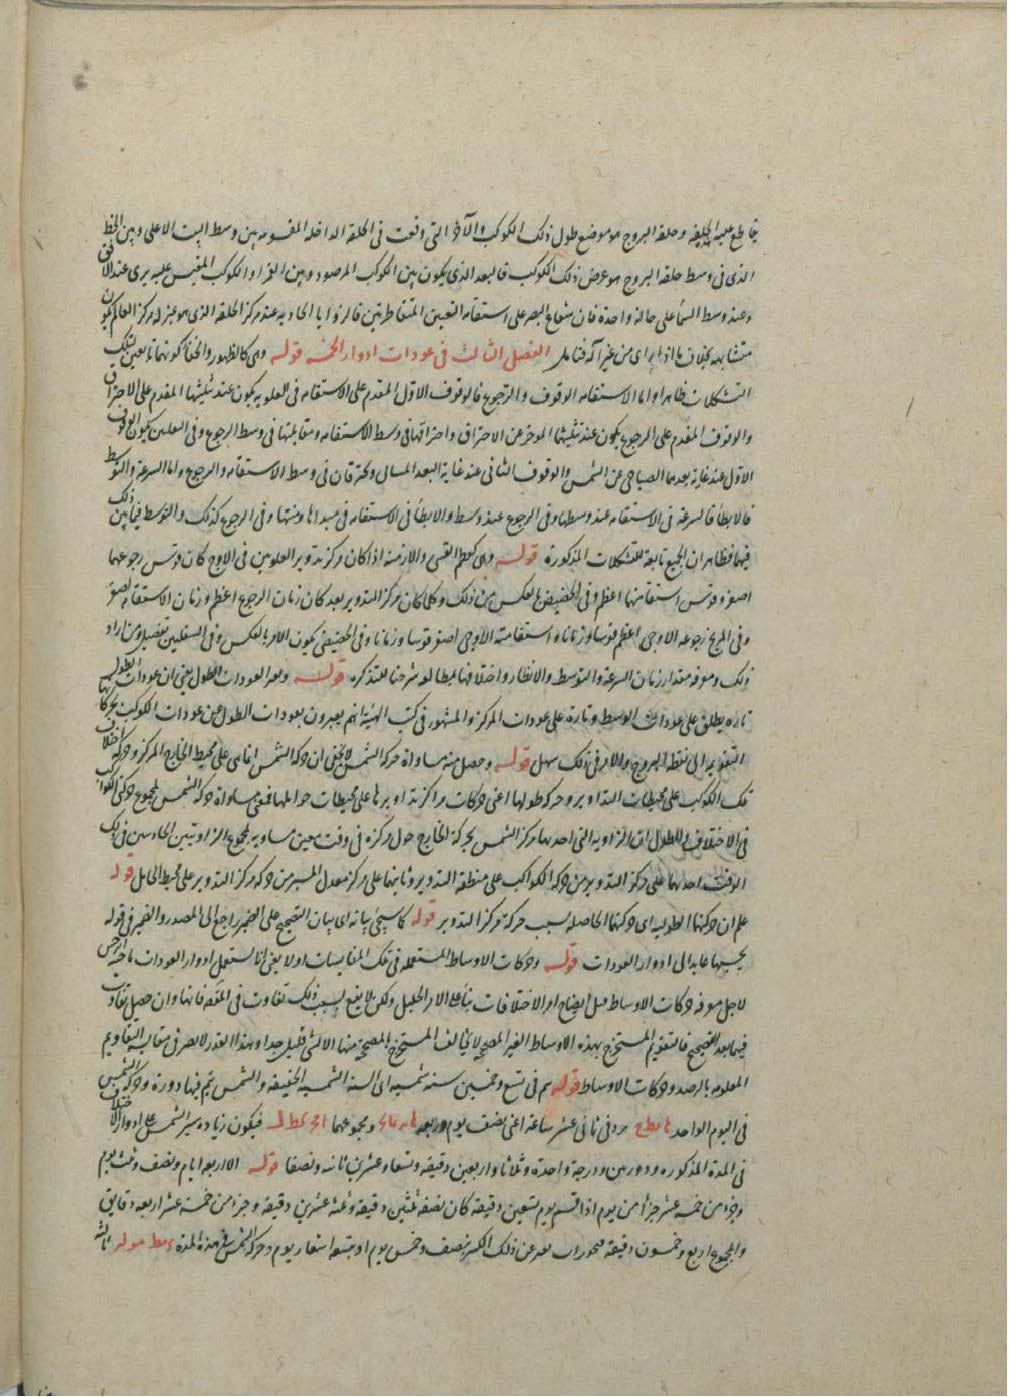 يقاطع عليه الحلقة وحلقة البروج هو موضع طول ذلك الكوكب والآخر التي وقعت في الحلقة الداخلة المقسومه بين وسط البيت الاعلى وبين الخط
الذي في وسط حلقة البروج هو عرض ذلك الكوكب فالبعد الذي يكون بين الكوكب المرصود وبين القمر او الكوكب المقيس عليه يرى عند الافق
وعند وسط السماء على حالة واحدة فان شعاع البصر على استقامة الثقبين المتقاطرتين فالزوايا الحادية عند مركز الحلقة الذي هو بمنزلة مركز العالم يكون
متشابهه بخلاف ما اذا من غير آله فتامل الفصل الثالث في عودات ادوار الخمسة قوله وهي كالظهور والخفا كونهما تابعين لتلك
التشكلات ظاهر واما الاستقامه الوقوف والرجوع فالوقوف الاول المتقدم على الاستقامه في العلويه يكون عند تثليثها المقدم على الاحتراق
والوقوف المقدم على الرجوع يكون عند تثليثها الموخر عن الاحتراق واحتراقها في وسط الاستقامه ومقابلتها في وسط الرجوع وفي السفليين يكون الوقوف
الاول عند غاية بعدهما الصباحي عن الشمس والوقوف الثاني عند غاية البعد المسائي ويحترقان في وسط الاستقامه والرجوع واما السرعة والتوسط
فالابطأ فالسرعة في الاستقامه عند وسطها وفي الرجوع عند وسط والابطأ في الاستقامه في مبداها ومنتهاها وفي الرجوع كذلك والتوسط فيما بين ذلك
فيهما فظاهر ان الجميع تابعة للتشكلات المذكورة قوله وهي كعظم القسي والازمنة اذا كان مركز تدوير العلويين في الاوج كان قوس رجوعهما
اصغر وقوس استقامتهما اعظم وفي الحضيض بالعكس من ذلك وكلما كان مركز التدوير ابعد كان زمان الرجوع اعظم وزمان الاستقامه اصغر
وفي المريخ رجوعه الاوجي اعظم قوسا وزمانا واستقامته الاوجي اصغر قوسا وزمانا وفي الحضيضي يكون الامر بالعكس وفي السفليين تفصيل ومن اراد
ذلك ومعرفة مقدار زمان السرعة والتوسط والانظار واختلافها فليطالع شرحنا للتذكره قوله وبعد العودات الطول يعني ان عودات الطول
تاره يطلق على عودات الوسط وتارة على عودات المركز والمشهور في كتب الهيئة انهم يعبرون بعودات الطول عن عودات الكوكب بحركاتها
التقويم الى نقطة البروج والامر في ذلك سهل قوله وحصل منه مساواة حركة الشمس لا يخفى ان حركة الشمس انما هي على محيط الخارج المركز وحركة اختلاف
تلك الكوكب على محيطات التداوير وحركة طولها اعني حركات مراكز تداويرها على محيطات حواملها فمعنى مساواة حركة الشمس لمجموع حركتي الكواكب
في الاختلاف والطول ان الزاويه التي احدثها مركز الشمس بحركة الخارج حول مركزه في وقت معين مساويه لمجموع الزاويتين الحادثتين في ذلك
الوقت احدهما على مركز التدوير من حركة الكواكب على منطقة التدوير وثانيتهما على مركز معدل المسير من حركة مركز التدوير على محيط الحامل قوله
علم ان حركتها الطوليه اي حركتها الحاصله بسبب حركة مركز التدوير قوله كما سيجئ بيانه اي بيان التصحيح على الضمير راجع الى المصدر والضمير في قوله
بحسبها عايد الى ادوار العودات قوله وحركات الاوساط المستعمله في تلك المقايسات اولا يعني انا نستعمل ادوار العودات ماخذ ابرخس
لاجل معرفة حركات الاوساط قبل ايضاح امر الاختلافات بناء على الامر الجليل ولكن لا يقع بسبب ذلك تفاوت في المقصد فانها وان حصل تفاوت
فيما بعد التصحيح فالتقويم المستخرج بهذه الاوساط الغير المصححة لا يخالف المستخرج المصححة منها الا لشئ قليل جدا وهذا القدر لا يضر في مقايسة التقاويم
المعلومه بالرصد وحركات الاوساط قوله في تسع وخمسين سنة شمسيه اي السنة الشمسيه الحقيقة والشمس يتم فيها دورة وحركة الشمس
في اليوم الواحد وفي ثاني عشر ساعة اعني نصف يوم وربعه ومجموعهما فيكون زياده سير الشمس على ادوار الاختلاف
في المدة المذكوره ودورين ودرجة واحدة وثلاثا واربعين دقيقه وتسعا وعشرين ثانية ونصفا قوله الا اربعة ايام ونصف وثلث يوم
وجزء من خمسة عشر جزءا من يوم اذا قسم يوم بستين دقيقه كان نصفه ثلثين دقيقه وثلثه عشرين دقيقه وجزء من خمسة عشر اربعه دقايق
والمجموع اربع وخمسون دقيقه عن ذلك الكسر بنصف وخمس يوم او بتسعة اعشار يوم وحركة الشمس في هذه المدة